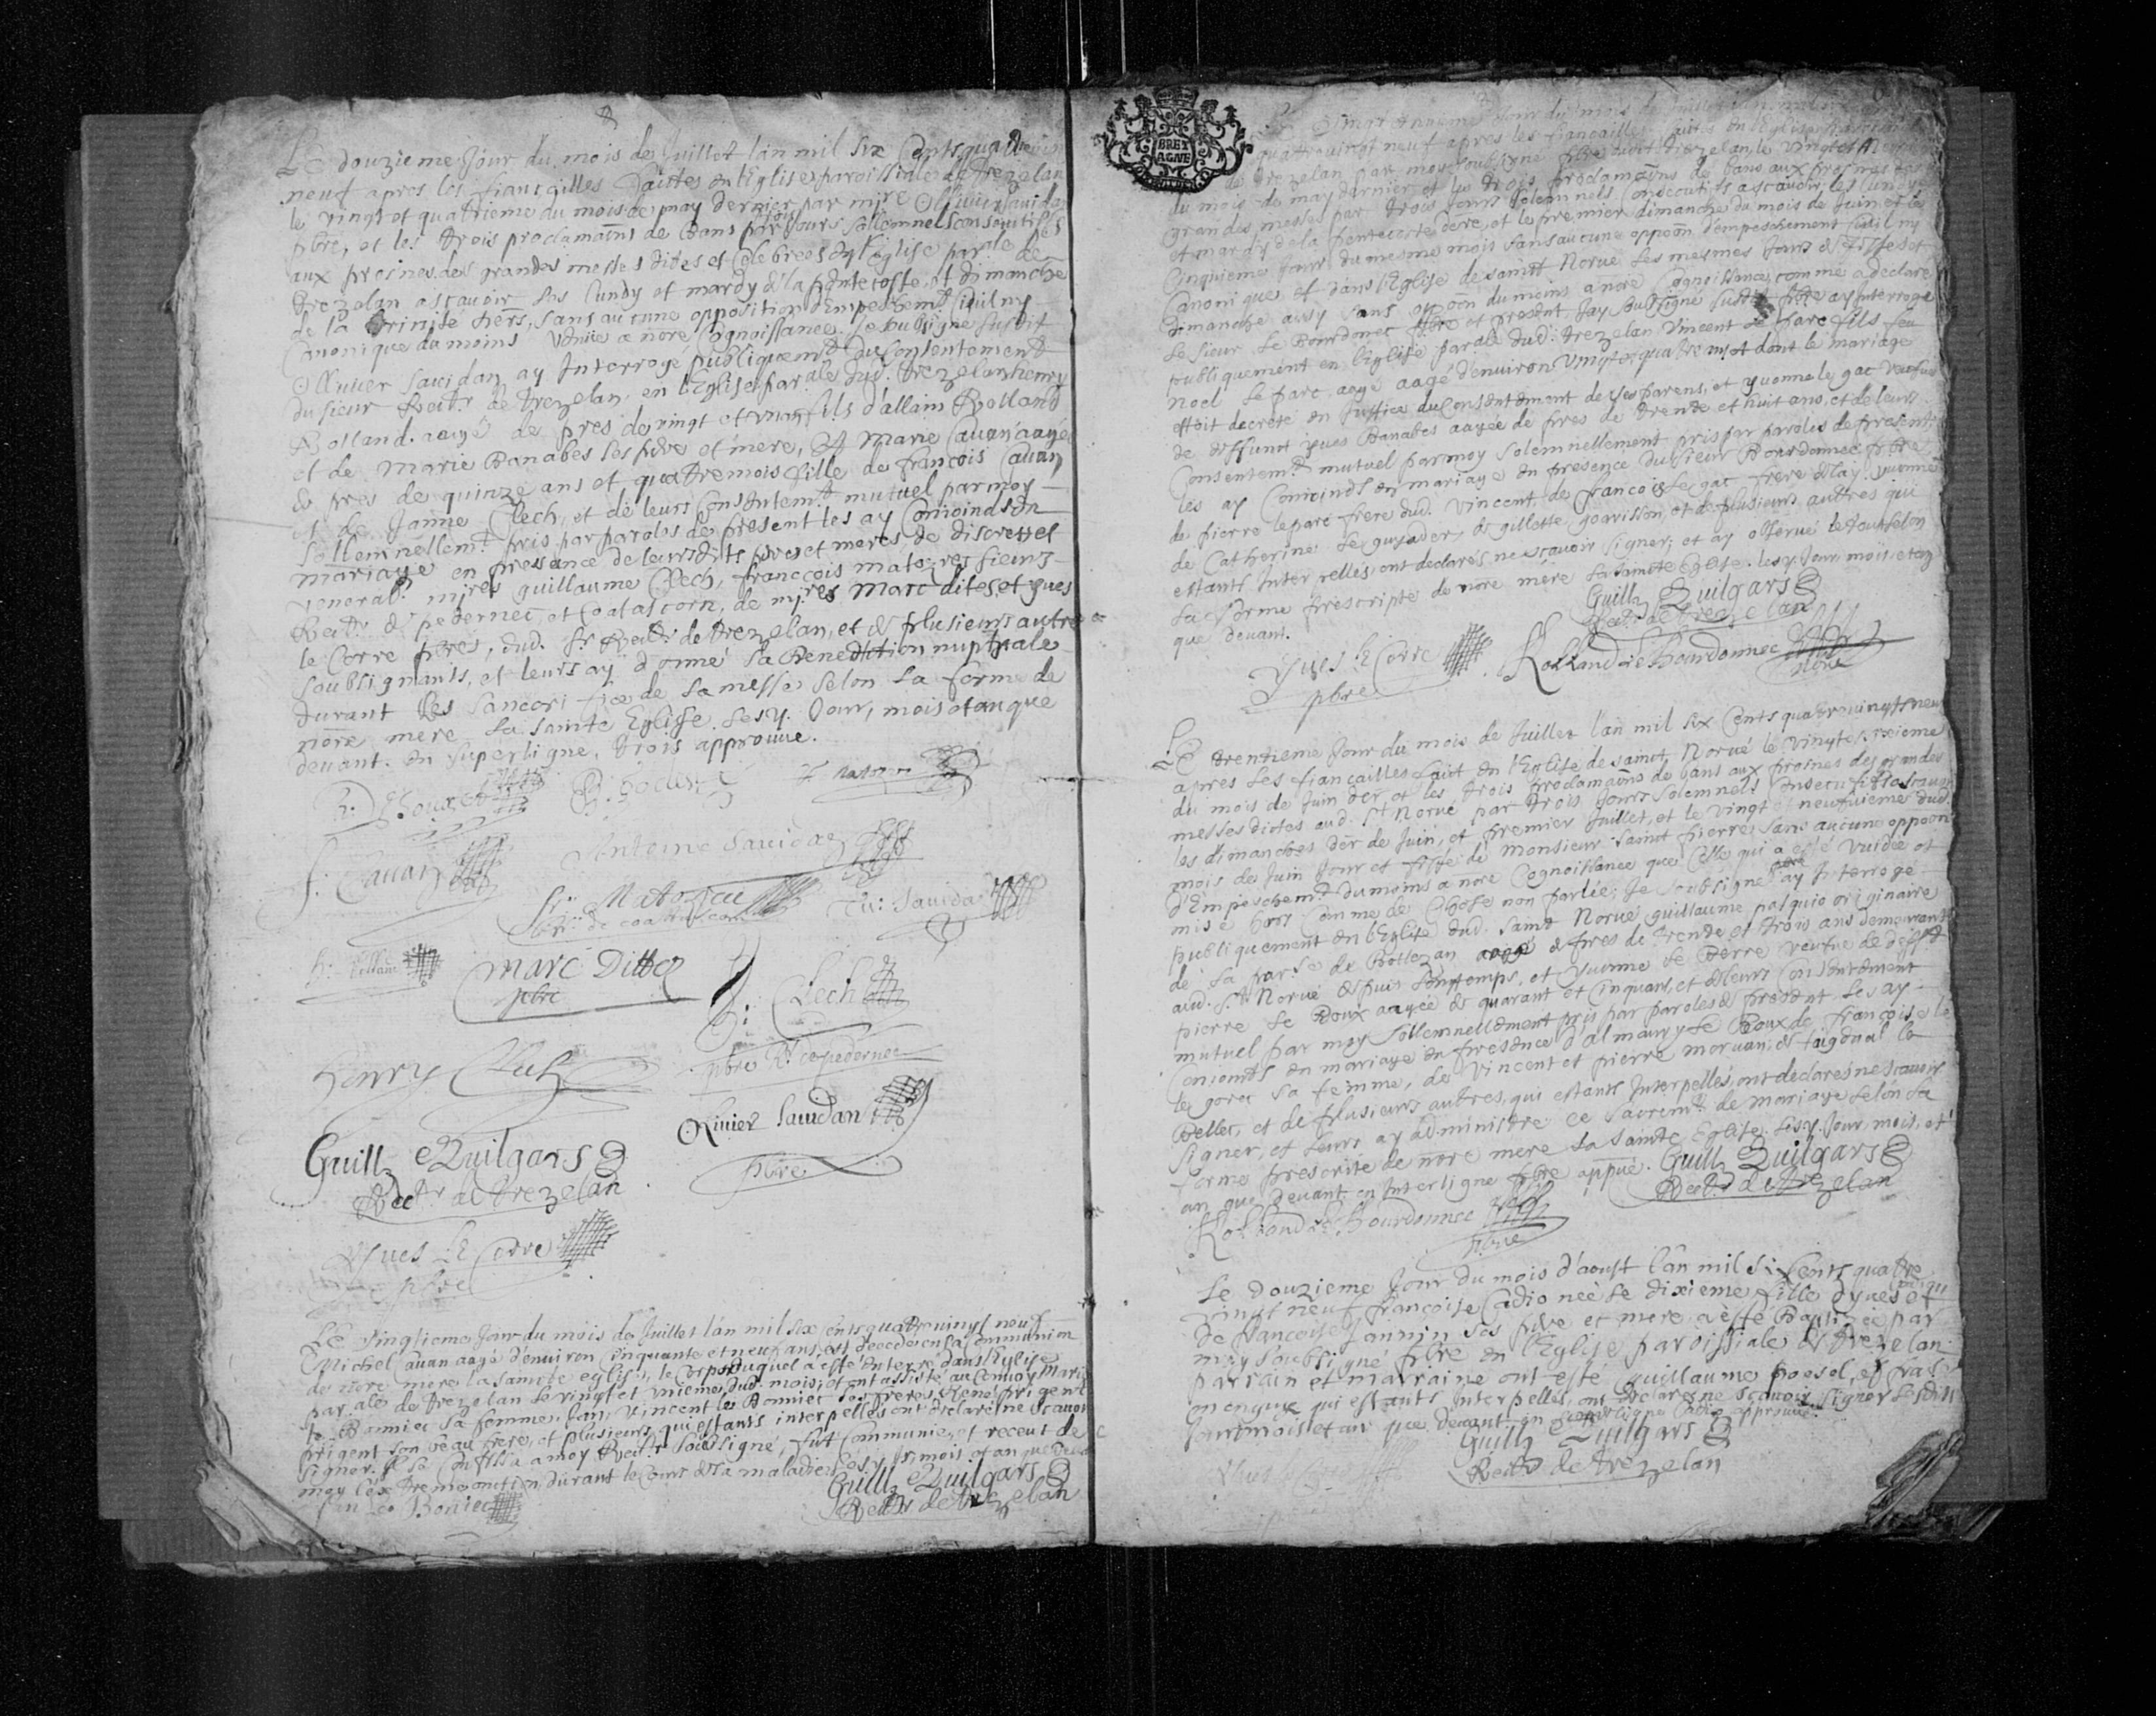 Le douzieme Jour du mois de Juillet lan mil six Cents quatrevin
neuf apres les fiançailles faittes en l'Eglise paroissiale de trezelan
le vingt et quatrieme du mois de may dernier par mire Ollivier Sauidan
pbre, et les trois proclamaons de Bans par trois Jours sollemnels consecutifs
aux prosnes des grandes messes dites et celebrees en l'Eglise par.ale de
trezelan ascauoir les lundy et mardy de la pentecoste, et dimanche
de la trinité ders, sans aucune opposition d'Empechemt Ciuil ny
Canonique du moins venüe a nore Cognoissance. Je soubsigne susdit
Olliuier Sauidan ay Interrogé publiquemt du Consentement
du sieur Rectr de trezelan en l'Eglise par.ale dud. trezelan henry
Rolland. aagé de pres de vingt et un fils d'allain Rolland
et de Marie Banabes ses pere et mere, et Marie Cauan aagee
de pres de quinze ans et quatre mois fille de francois Cauan
et de Janne Clech, et de leurs Consentemt mutuel par moy
sollemnellemt pris par paroles de present les ay Conioinds en
mariage en presence de leursdits peres et meres, de discrets et
venerab. mires guillaume Clech, francçois matozres sieurs
Rectrs de pedernec, et Coatascorn, de mires Marc dites, et yues
le Corre pbres, dud. sr Rectr de trezelan, et de plusieurs autre
soubsignants, et leurs ay donné la Benediction nuptiale
durant les Sancori fice de la messe selon la forme de
nore mere la sainte Eglise. Lesy. Jour, mois et an que
deuant. en superligne, trois approuue.
f: Cauan
Antoine Sauidan
Marc Dittes
pbre
G: Clech
pbre Rr de pedernec
henry Clech
Oliuier Sauidan
pbre
Guill Quilgars
Rectr de trezelan
Yues Le Corre
pbre
Le vingtieme Jour du mois de Juillet l'an mil six Cents quatrevingt neuf
Michel Cauan aagé d'enuiron Cinquante et neuf ans, est decedé en la Communion
de nore mere la saincte eglise, le Corps duquel a este enterré dans l'Eglise
par.ale de trezelan le vingt et unieme dud. mois, et ont assisté au Conuoy Marie
le Bonniec sa femme, Jan, Vincent le Bonniec ses freres, René prigent
prigent son beau frere, et plusieurs, qui estants interpellés ont declaré ne scauoir
signer. Il se Confessa a moy Rectr soubsigné, fut Communié, et receut de
moy l'extreme onction durant le Cours de sa maladie, Lesy Jr, mois et an que deuant
Jan Le Boniec
Guill Quilgars
Rectr de trezelan
BRET
AGNE
Le Vingt et unieme Jour du mois de Juillet l'an mil six
quattrevingt neuf apres les fiançailles faites en l'Eglise paroissiale
de trezelan par moy soubsigné pbre
du mois de may dernier, et les trois proclamaons de bans aux prosnes des
grandes messes par trois Jours solemnels Consecutifs ascauoir les lundy
et mardy de la pentecoste dere, et le premier dimanche du mois de Juin, et le
Cinquieme Jour du mesme mois sans aucune oppoon d'empeschement Ciuil ny
Canonique et dans l'Eglise de saint Norué les mesmes Jours de festes et
dimanche aussy sans oppoon du moins a nore Cognoissance, comme a declaré
le sieur Le Bourdonnec pbre et present Jay soubsigné susdit pbre ay Interrogé
publiquement en l'Eglise par.ale dud. trezelan Vincent Le parc fils feu
Noel Le parc, aagé d'enuiron Vingt et quatre ans et dont le mariage
estoit decreté en Justice du Consentement de ses parens, et yuonne le gac veufue
de deffunt yues Banabes aagée de pres de trente et huit ans, et de leurs
Consentemt mutuel par moy solemnellement pris par paroles de present
les ay Conioinds en mariage en presence du sieur Bourdonnec pbre
de pierre leparc frere dud. Vincent, de francois Le gac frere de lay. yuonne
de Catherine Le guyader, de gillette goarisson, et de plusieurs auttres qui
estants Interpellés, ont declarés ne scauoir signer, et ay obserué le tout selon
la forme prescripte de nore mere la saincte Eglise. Lesy. Jour, mois et an
que deuant.
Guill Quilgars
Rectr de trezelan
Yues Le Corre
pbre
Rolland Le Bourdonnec
pbre
Le trentieme Jour du mois de Juillet l'an mil six Cents quatrevingts neuf
apres les fiançailles fait en l'Eglise de sainct Norué le vingt et sixieme
du mois de Juin der et les trois proclamaons de bans aux prosnes des grandes
messes dictes aud. st Norué par trois Jours Solemnels Consecutifs ascauoir
les dimanches der de Juin, et premier Juillet, et le vingt et neufuieme dud.
mois de Juin Jour et feste de Monsieur saint pierre, sans aucune oppoon
d'Empeschemt du moins a nore Cognoissance que Celle qui a esté vuidée et
mise hors Comme de Chose non parlée, Je soubsigné pbre ay Interrogé
publiquement en l'Eglise dud. saint Norué guillaume pasquio originaire
de la par.se de Bottezan aagé de pres de trente et trois ans demeurant
aud. st Norué depuis longtemps, et yuonne Le Perre veufue de defft
pierre Le Roux aagée de quarant et Cinquans, et de leurs Consentement
mutuel par moy sollemnellement pris par paroles de present les ay
Conioinds en mariage en presence d'almaury Le Roux de françoise le
le gorec sa femme, de Vincent et pierre moruan, de Iaigonal le
Bellec, et de plusieurs autres, qui estants Interpellés, ont declarés ne scauoir
signer, et leurs ay administré ce sacremt de mariage selon la
forme prescrite de nore mere la sainte Eglise. Lesy. Jour, mois, et
an que deuant. en Interligne pbre appué. Guill Quilgars
Rectr de trezelan
Rolland Le Bourdonnec
pbre
Le douzieme Jour du mois d'aoust l'an mil six Cents quatre
vingt neuf françoise Cadio née le dixieme fille d'yues
de francoise Jannin ses pere et mere a esté Baptizée par
moy soubsigné pbre en l'Eglise paroissiale de trezelan
parrain et marraine ont esté guillaume poesol, et
qui estants Interpellés, ont declarés ne scauoir signer
Jour mois et an que deuant en superligne Cadio approuué.
Guill Quilgars
Rectr de trezelan